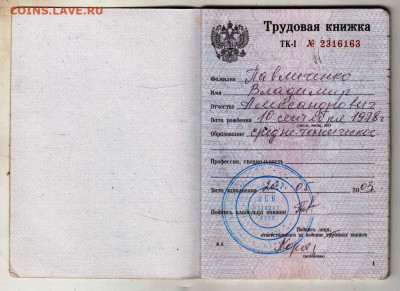 COINS.LAVE.RU
Трудовая книжка
ТК-I № 2316163
Фамилия Павличенко
Имя Владимир
Отчество
Дата рождения 10 сентября 1978 г
(число, месяц, год)
Образование средне-техническое
Профессия, специальность
Дата заполнения 2003
Подпись владельца книжки
Подпись лица,
ответственного за ведение трудовых книжек
М.П.
(разборчиво)
1